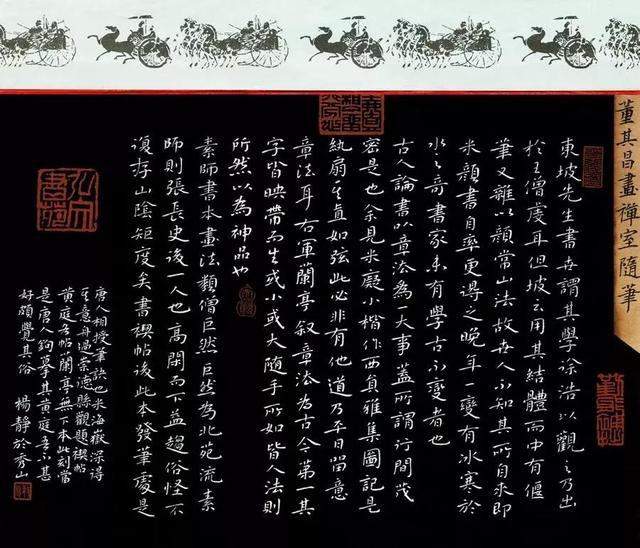 董其昌畫禪室隨筆
東坡先生書世謂其學徐浩以觀之乃出
於王僧虔耳但坡云用其結體而中有偃
筆又雜以顏常山法故世人不知其所自來即
米顏書自率更得之晚年一變有冰寒於
水之奇書家未有學古不變者也
古人論書以章法為一大事蓋所謂行間茂
密是也余見米癡小楷作西園雅集圖記是
紈扇其直如弦此必非有他道乃平日留意
章法耳右軍蘭亭叙章法為古今第一其
字皆映帶而生或小或大隨手所如皆人法則
所然以為神品也
素師書本畫法類僧巨然巨然為北苑流素
師則張長史後一人也高閑而下益趨俗怪不
復存山陰矩度矣書禊帖後此本發筆處是
唐人相授筆訣也米海嶽深得
其意舟過崇德縣觀題禊帖
黃庭各帖蘭亭無下本此刻當
是唐人鉤摹其黃庭吾不甚
好頗覺其俗 楊靜於秀山